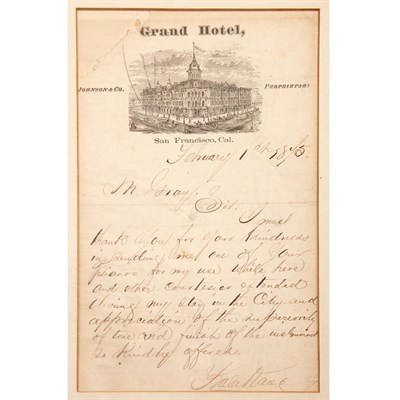 Grand Hotel,
JOHNSON & CO. PROPRIETORS
San Francisco, Cal.
February 1st 1875
M Gray
Sir. I must
thank you for your kindness
in sending me one of your
pianos for my use while here
and other courtesies extended
during my stay in the City and
appreciation of the superiority
of tone and finish of the instrument
so kindly offered.